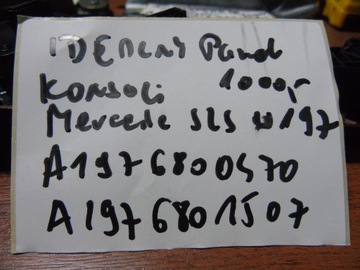 IDEALNY Panel
KONSOLI 1000,-
Mercedes SLS W197
A1976800470
A1976801507